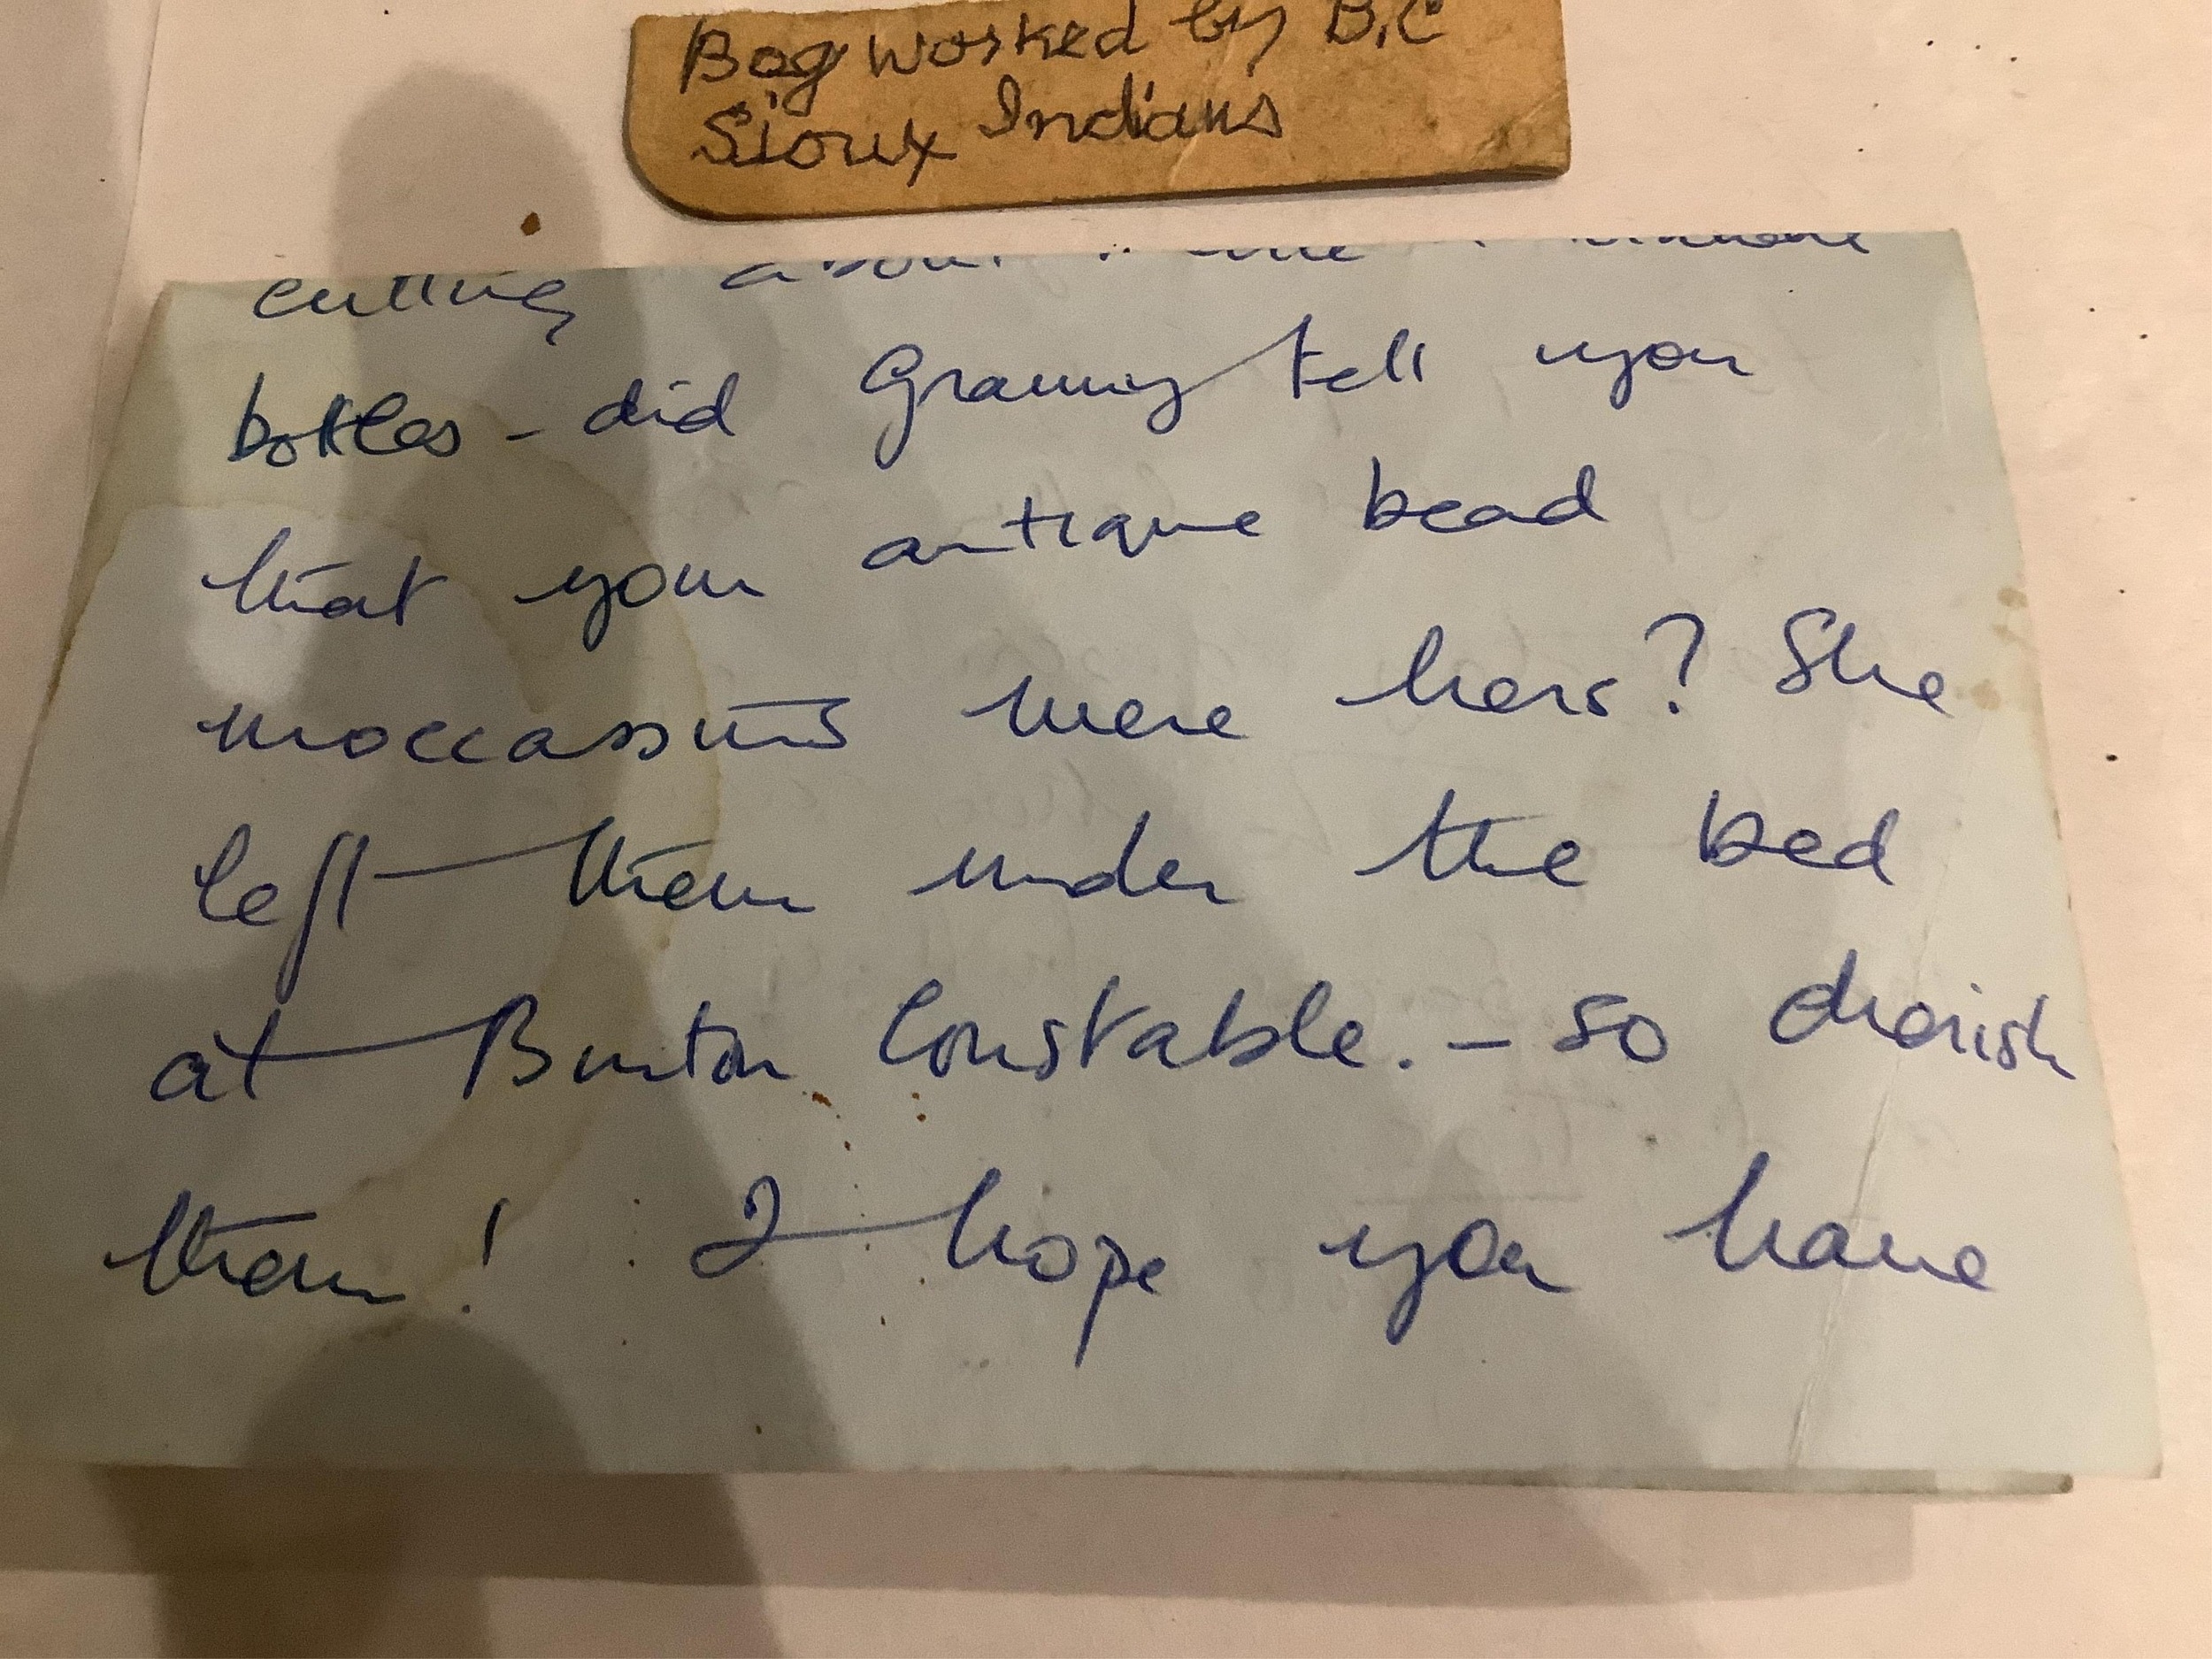 Bag worked by B.C
Sioux Indians
cutting about
bottles - did Granny tell you
that your antique bead
moccassins were hers? She
left them under the bed
at Burton Constable. - so cherish
them! I hope you have